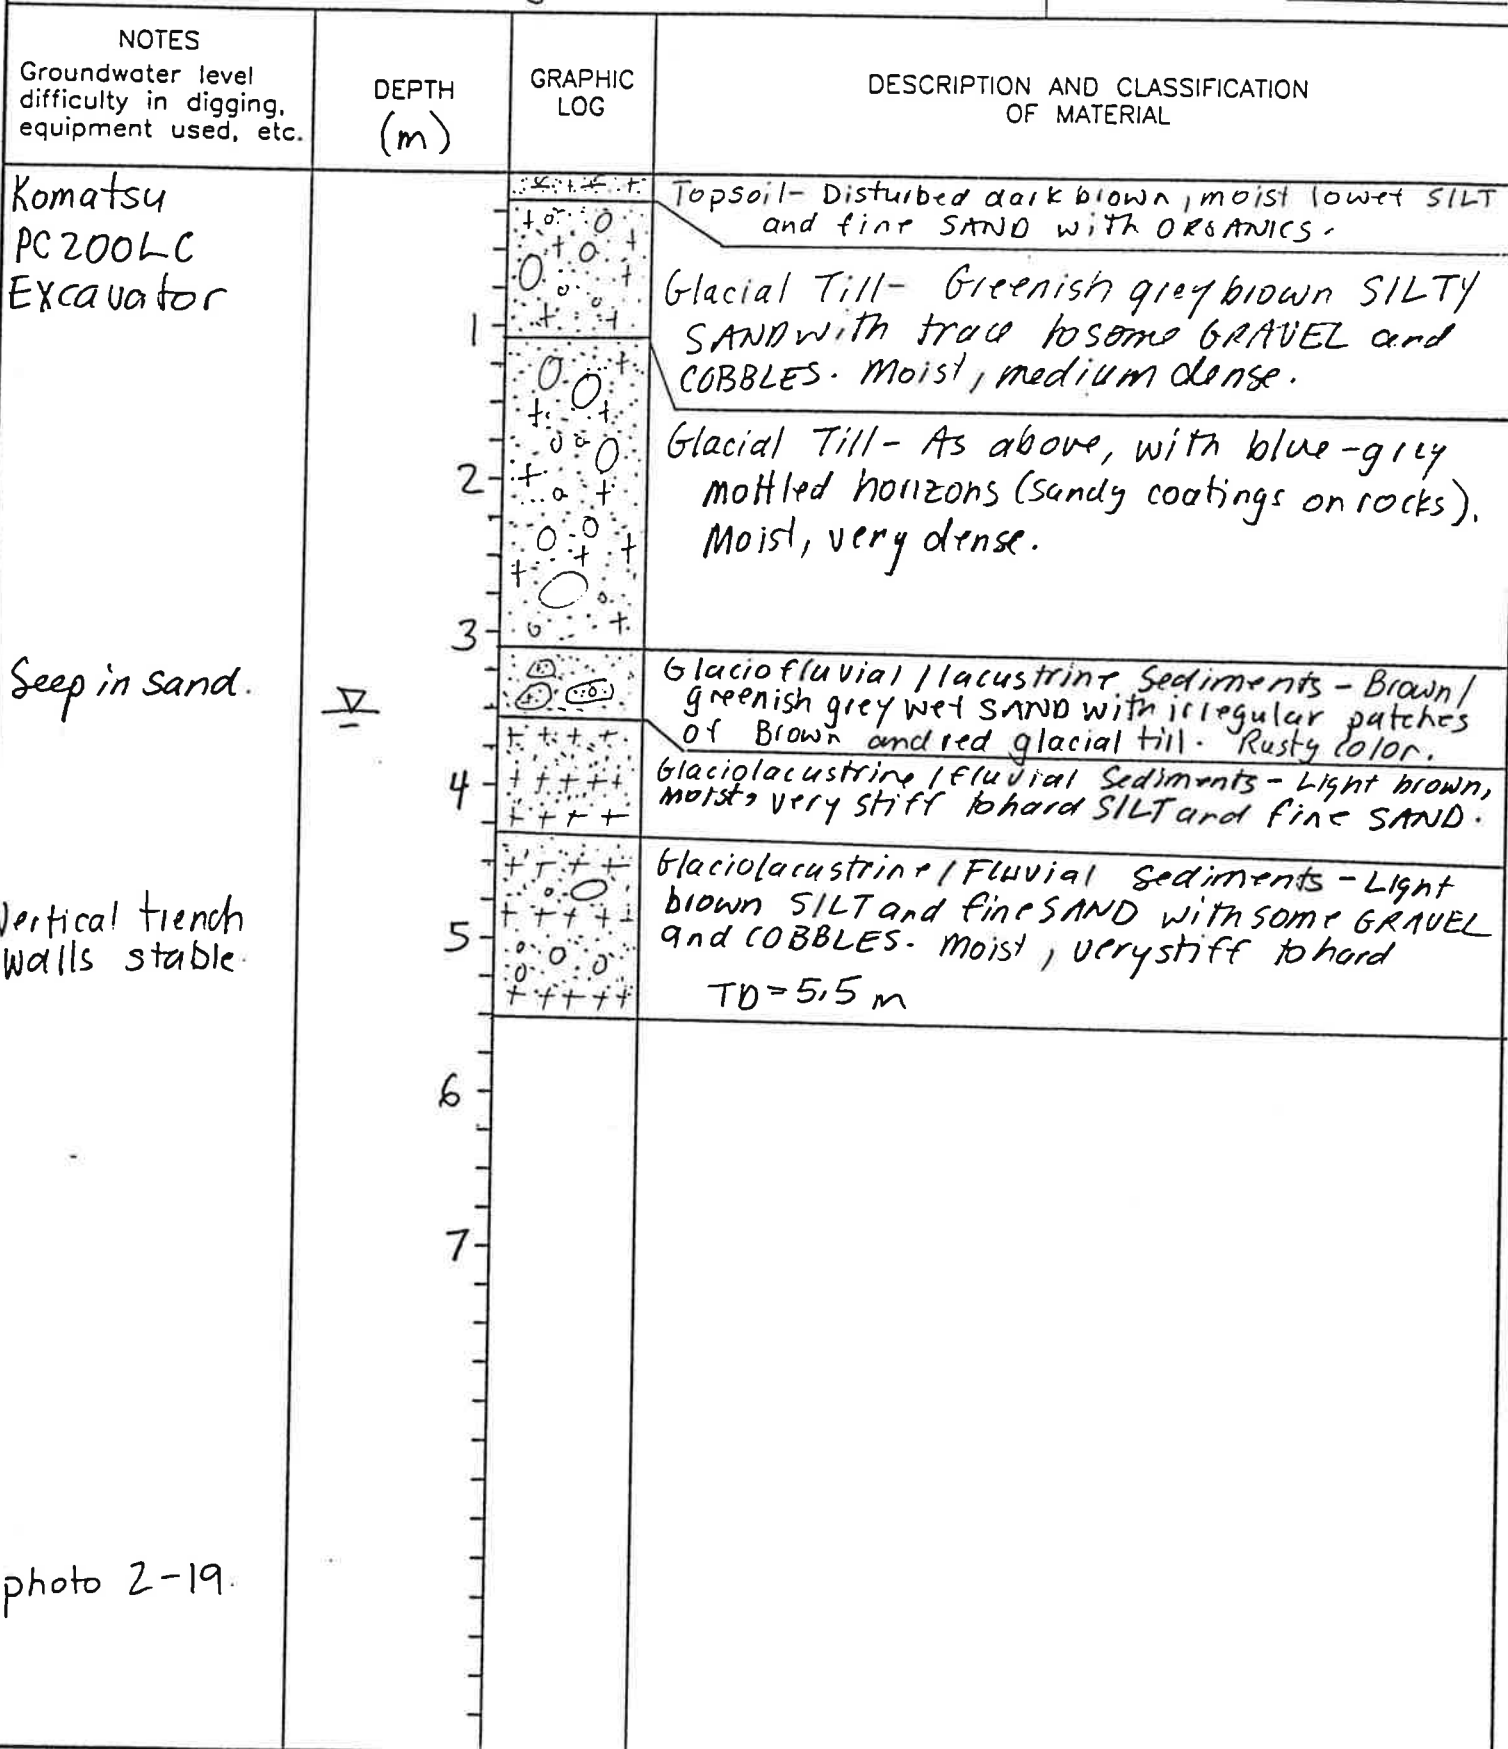 NOTES
Groundwater level
difficulty in digging,
equipment used, etc.
DEPTH
(m)
GRAPHIC
LOG
DESCRIPTION AND CLASSIFICATION
OF MATERIAL
Komatsu
PC200LC
Excavator
Topsoil- Disturbed dark brown, moist to wet SILT
and fine SAND with ORGANICS.
Glacial Till- Greenish grey brown SILTY
SAND with trace to some GRAVEL and
COBBLES. Moist, medium dense.
1
Glacial Till- As above, with blue-grey
mottled horizons (sandy coatings on rocks).
Moist, very dense.
2
3
Seep in sand.
Glaciofluvial/lacustrine Sediments - Brown/
greenish grey wet SAND with irregular patches
of Brown and red glacial till. Rusty color.
Glaciolacustrine/fluvial Sediments - Light brown,
moist, very stiff to hard SILT and fine SAND.
4
Glaciolacustrine/Fluvial Sediments - Light
brown SILT and fine SAND with some GRAVEL
and COBBLES. Moist, very stiff to hard
TD=5.5 m
Vertical trench
walls stable.
5
6
7
photo 2-19.